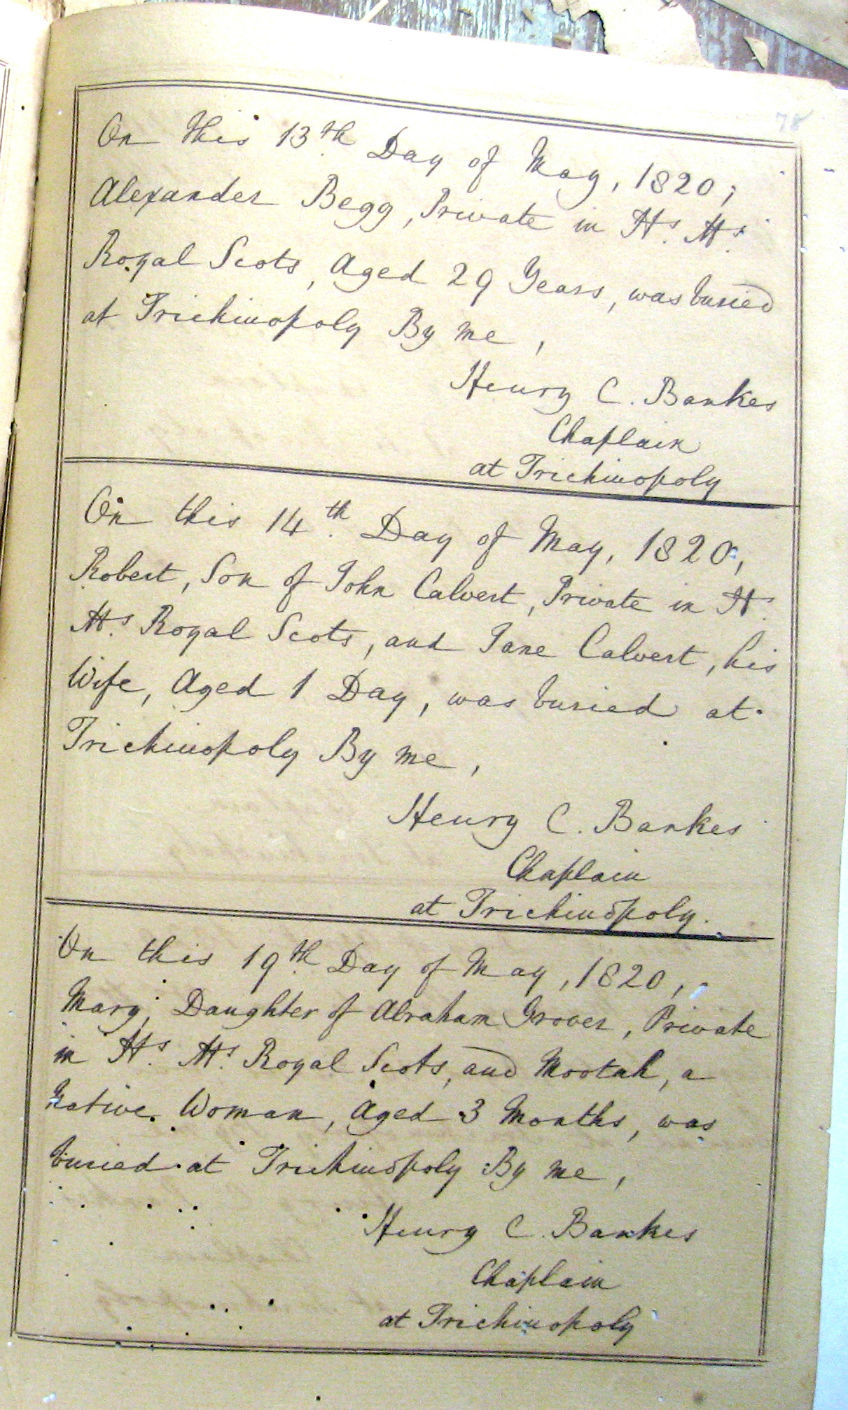 78
On this 13th Day of May, 1820;
Alexander Begg, Private in H's. M's.
Royal Scots, Aged 29 Years, was buried
at Trichinopoly By me,
Henry C. Bankes
Chaplain
at Trichinopoly
On this 14th Day of May, 1820,
Robert, Son of John Calvert, Private in H's.
M's. Royal Scots, and Jane Calvert, his
Wife, Aged 1 Day, was buried at
Trichinopoly By me,
Henry C. Bankes
Chaplain
at Trichinopoly.
On this 19th Day of May, 1820,
Mary, Daughter of Abraham Grover, Private
in H's. M's. Royal Scots, and Mootah, a
Native Woman, Aged 3 Months, was
buried at Trichinopoly By me,
Henry C. Bankes
Chaplain
at Trichinopoly